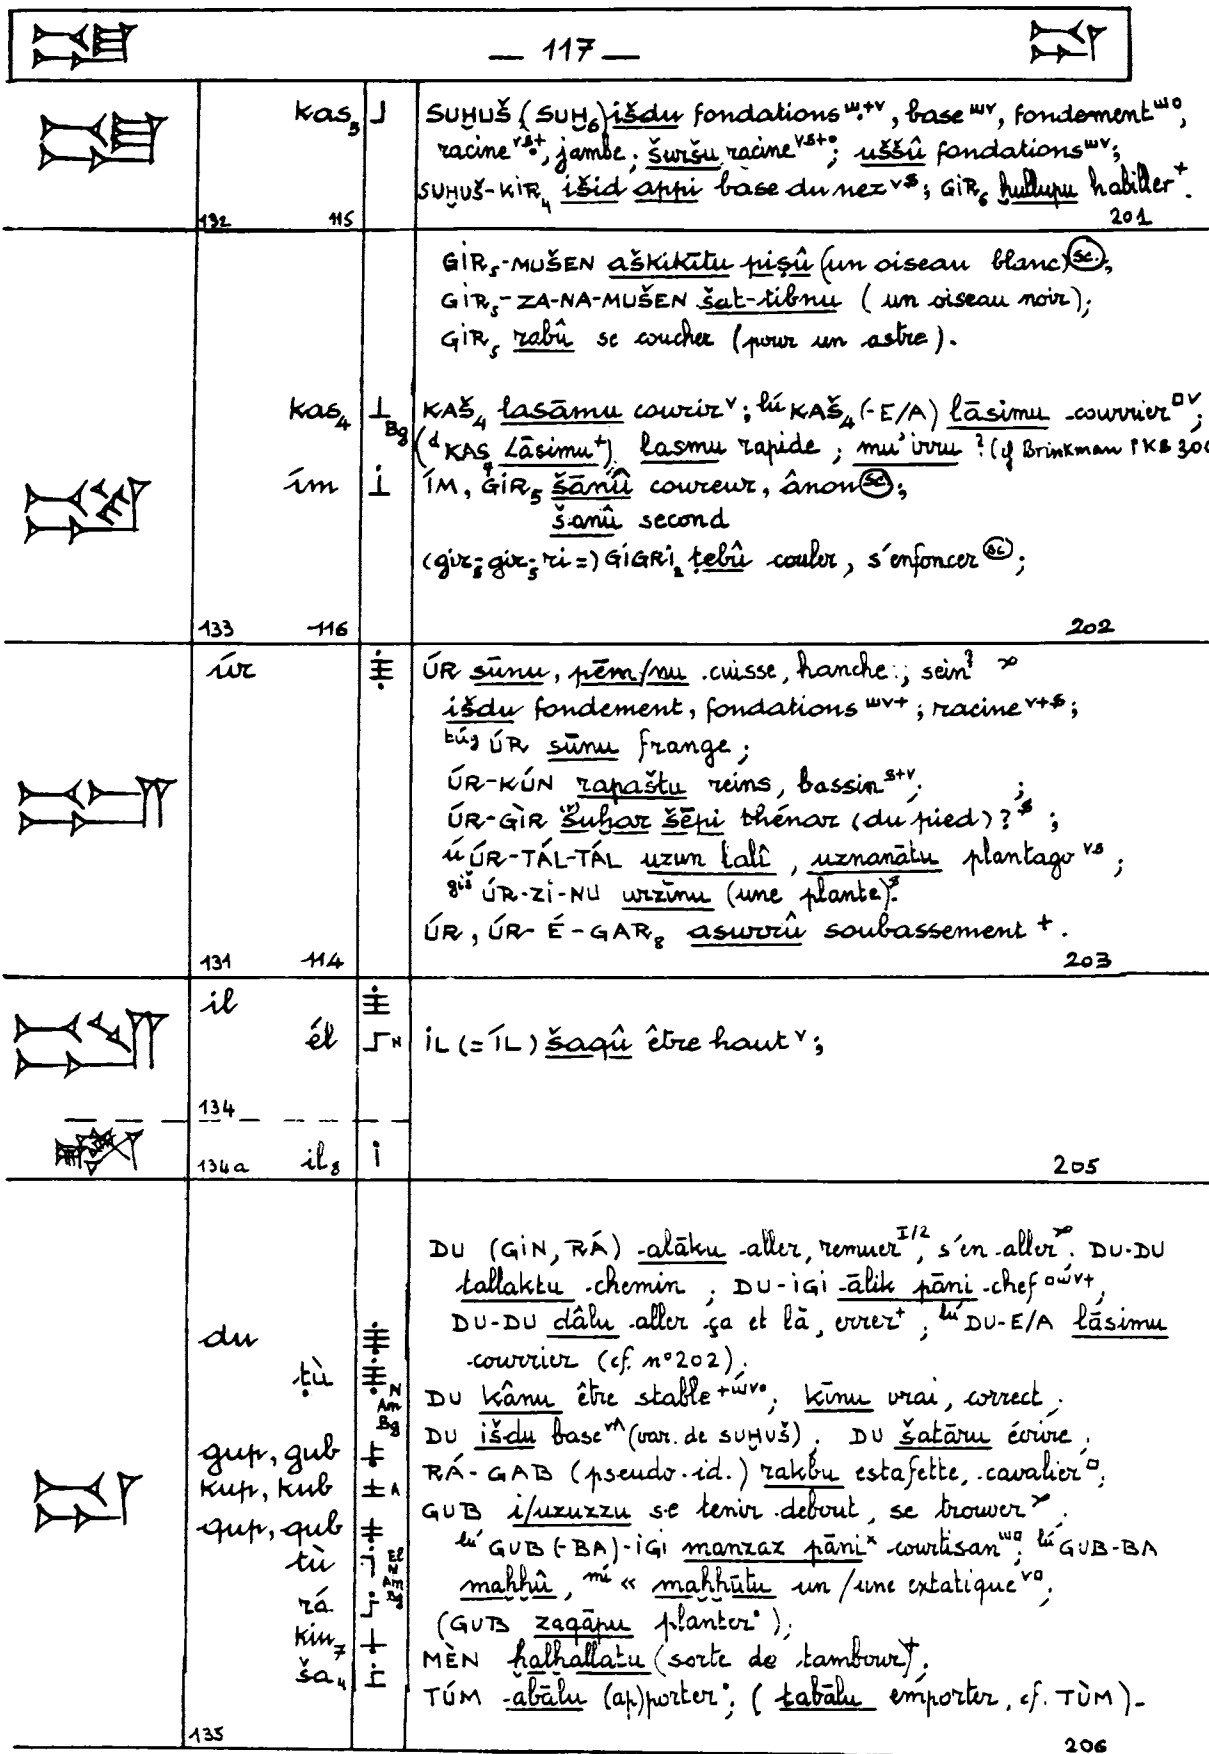 — 117 —
kas₅ SUḪUŠ (SUḪ₆) išdu fondations, base, fondement,
racine, jambe; šuršu racine; uššū fondations;
SUḪUŠ-KIR₄ išid appi base du nez; GÌR₆ ḫullupu habiller⁺.
132 115 201
GÌR₅-MUŠEN aškikītu piṣû (un oiseau blanc) (sc.);
GÌR₅-ZA-NA-MUŠEN šat-tibnu (un oiseau noir);
GÌR₅ rabû se coucher (pour un astre).
kas₄ Bg KAŠ₄ lasāmu courir ᵛ; lú KAŠ₄ (-E/A) lāsimu courrier ᵛ;
(ᵈKAS₄ Lāsimu⁺) lasmu rapide; mu'irru ? (cf Brinkman PKB 306
ím ÍM, GÌR₅ šānû coureur, ânon (sc.);
šanû second
(gir₅-gir₅-ri =) GIGRI₂ ṭebû couler, s'enfoncer (sc);
133 116 202
úr ÚR sūnu, pēm/nu cuisse, hanche; sein?
išdu fondement, fondations; racine;
túg ÚR sūnu frange;
ÚR-KÚN rapaštu reins, bassin; ;
ÚR-GÌR šuḫar šēpi thénar (du pied)? ;
ú ÚR-TÁL-TÁL uzun lalî, uznanātu plantago;
giš ÚR-ZI-NU urzīnu (une plante).
ÚR, ÚR-É-GAR₈ asurrû soubassement ⁺.
131 114 203
il
él N IL (= ÍL) šaqû être haut ᵛ;
134
134a il₈ 205
DU (GIN, RÁ) alāku aller, remuer I/2, s'en aller. DU-DU
tallaktu chemin; DU-IGI ālik pāni chef,
DU-DU dâlu aller ça et là, errer⁺; lú DU-E/A lāsimu
du courrier (cf. n°202);
ṭù N Am Bg DU kânu être stable; kīnu vrai, correct;
DU išdu base (var. de SUḪUŠ); DU šatāru écrire;
gup, gub RÁ-GAB (pseudo-id.) rakbu estafette, cavalier;
kup, kub A GUB i/uzuzzu se tenir debout, se trouver;
qup, qub lú GUB (-BA)-IGI manzaz pāni courtisan; lú GUB-BA
tù maḫḫû, mí « maḫḫūtu un/une extatique;
rá (GUB zaqāpu planter);
kin₇ MÈN ḫalḫallatu (sorte de tambour)⁺;
ša₄ TÚM abālu (ap)porter; (tabālu emporter, cf. TÙM).
135 206